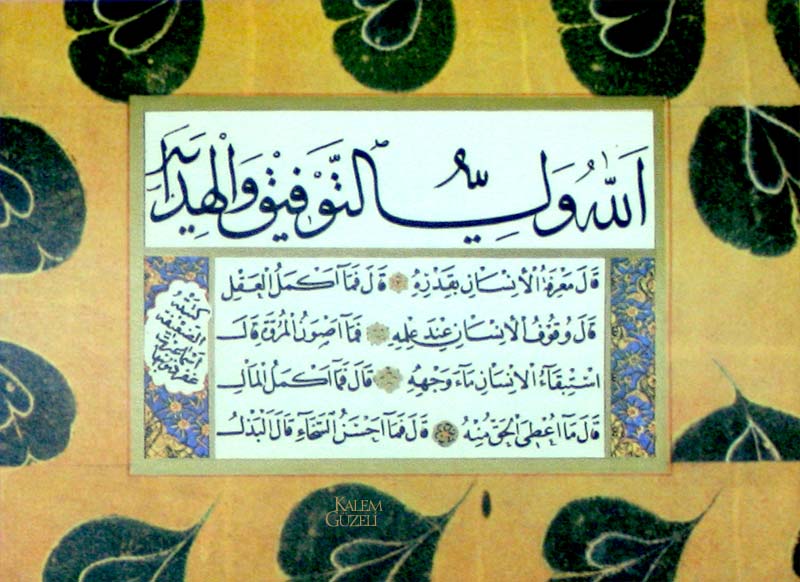 اَللّٰهُ وَلِيُّ التَّوْفِيقِ وَالْهِدَايَةِ
قَالَ مَعْرِفَةُ الْاِنْسَانِ بِقَدْرِهِ قَالَ فَمَا اَكْمَلُ الْعَقْلِ
قَالَ وُقُوفُ الْاِنْسَانِ عِنْدَ عِلْمِهِ فَمَا اَصْوَنُ الْمُرُوَّةِ قَالَ
اسْتِبْقَاءُ الْاِنْسَانِ مَاءَ وَجْهِهِ قَالَ فَمَا اَكْمَلُ الْمَالِ
قَالَ مَا اُعْطِيَ الْحَقُّ مِنْهُ قَالَ فَمَا اَحْسَنُ السَّخَاءِ قَالَ الْبَذْلُ
كتبته
الضعيفة
اسماء عبرت
غفر ذنوبها
KALEM
GÜZELİ